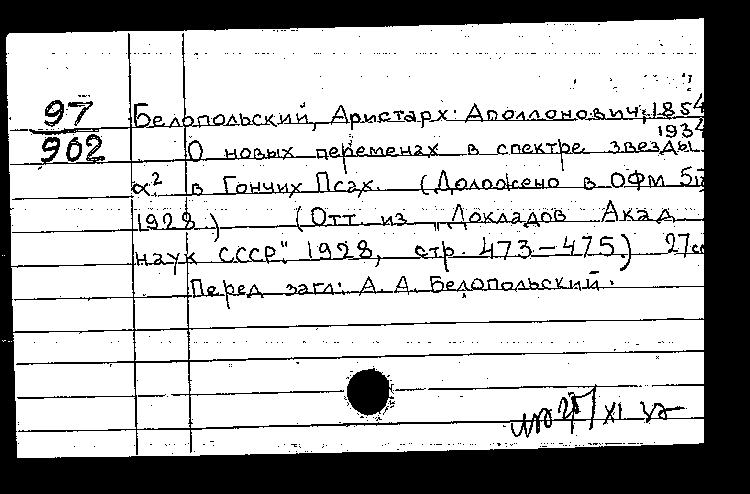 97
902
Белопольский, Аристарх Аполлонович, 1854
1934
О новых переменах в спектре звезды
α² в Гончих Псах. (Доложено в ОФМ 5 IX
1928.) (Отт. из „Докладов Акад
наук СССР". 1928, стр. 473-475.) 27 см
Перед загл: А. А. Белопольский.
XI